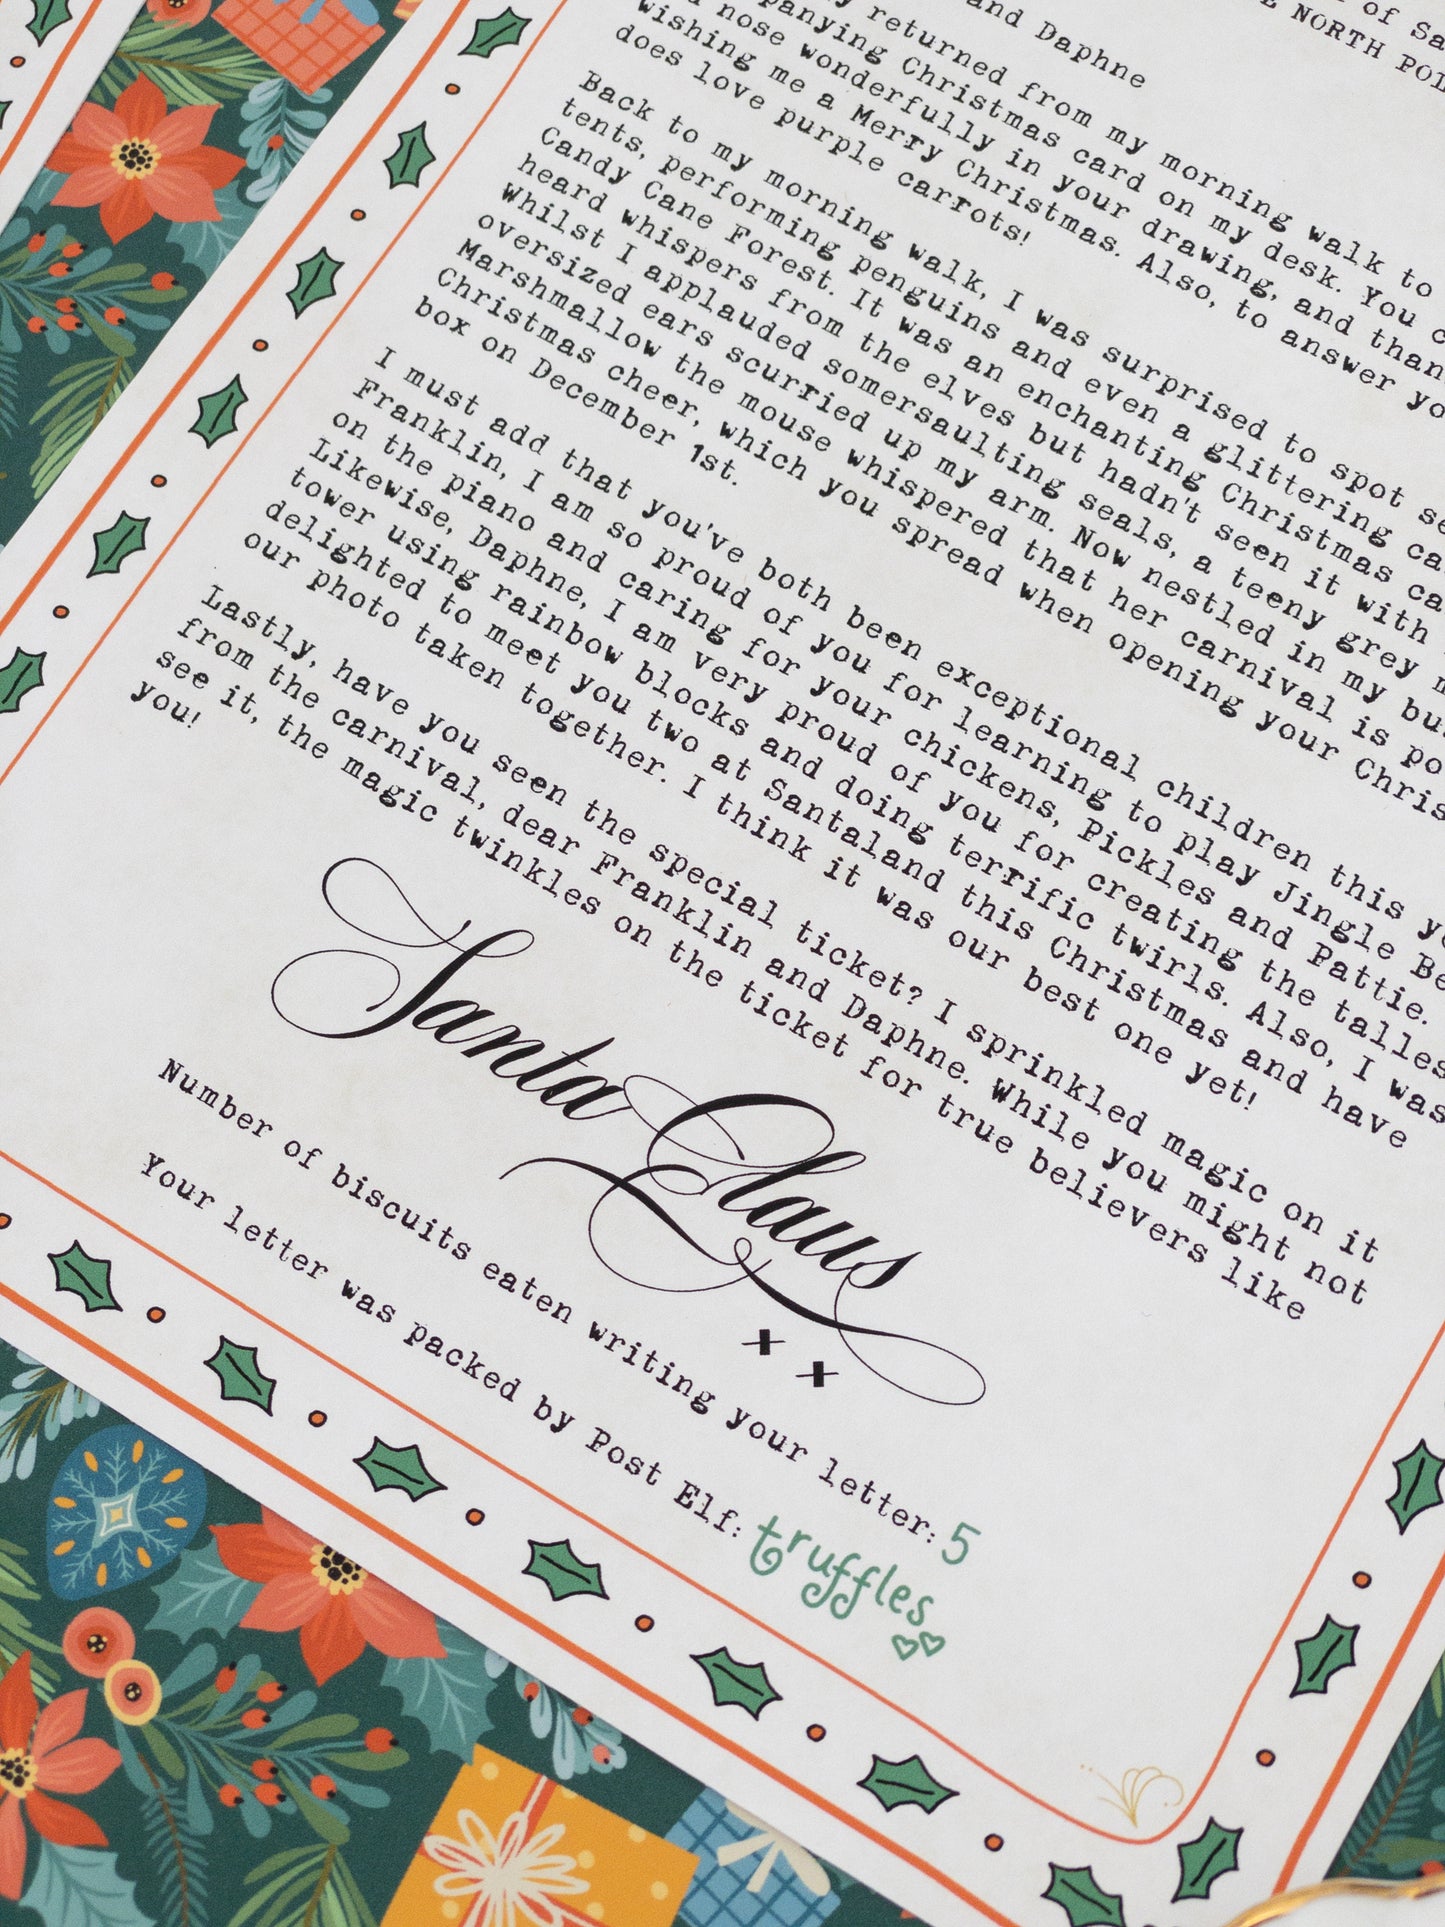 of
NORTH
and Daphne
returned from my morning walk to
Christmas card on my desk. You
nose wonderfully in your drawing, and
wishing me a Merry Christmas. Also, to answer
does love purple carrots!
Back to my morning walk, I was surprised to spot
tents, performing penguins and even a glittering
Candy Cane Forest. It was an enchanting Christmas
heard whispers from the elves but hadn't seen it with
Whilst I applauded somersaulting seals, a teeny grey
oversized ears scurried up my arm. Now nestled in my
Marshmallow the mouse whispered that her carnival is
Christmas cheer, which you spread when opening your
box on December 1st.
I must add that you've both been exceptional children this
Franklin, I am so proud of you for learning to play Jingle
on the piano and caring for your chickens, Pickles and Pattie.
Likewise, Daphne, I am very proud of you for creating the
tower using rainbow blocks and doing terrific twirls. Also, I was
delighted to meet you two at Santaland this Christmas and have
our photo taken together. I think it was our best one yet!
Lastly, have you seen the special ticket? I sprinkled magic on it
from the carnival, dear Franklin and Daphne. While you might not
see it, the magic twinkles on the ticket for true believers like
you!
Santa Claus
x x
Number of biscuits eaten writing your letter: 5
Your letter was packed by Post Elf: truffles